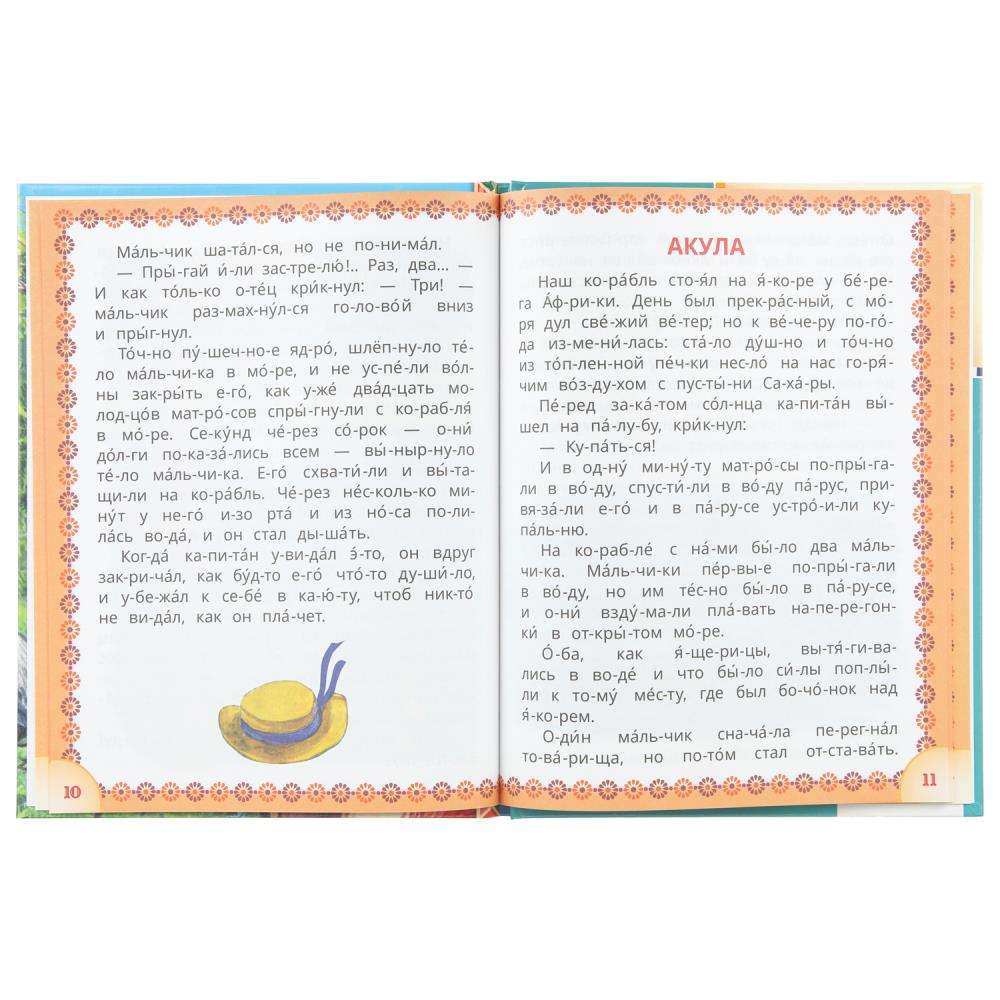 Ма́ль-чик ша-та́л-ся, но не по-ни-ма́л.
— Пры́-гай и́-ли зас-тре-лю́!.. Раз, два... —
И как то́ль-ко о-те́ц кри́к-нул: — Три! —
ма́ль-чик раз-мах-ну́л-ся го-ло-во́й вниз
и пры́г-нул.
То́ч-но пу́-шеч-но-е яд-ро́, шлёп-ну-ло те́-
ло ма́ль-чи-ка в мо́-ре, и не ус-пе́-ли во́л-
ны зак-ры́ть е-го́, как у-же́ два́д-цать мо-
лод-цо́в мат-ро́-сов спры́-гну-ли с ко-раб-ля́
в мо́-ре. Се-ку́нд че́-рез со́-рок — о-ни́
до́л-ги по-ка-за́-лись всем — вы́-ныр-ну-ло
те́-ло ма́ль-чи-ка. Е-го́ схва-ти́-ли и вы́-та-
щи-ли на ко-ра́бль. Че́-рез не́с-коль-ко ми-
ну́т у не-го́ и-зо рта́ и из но́-са по-ли-
ла́сь во-да́, и он стал ды-ша́ть.
Ког-да́ ка-пи-та́н у-ви-да́л э́-то, он вдруг
зак-ри-ча́л, как бу́д-то е-го́ что́-то ду-ши́-ло,
и у-бе-жа́л к се-бе́ в ка-ю́-ту, чтоб ник-то́
не ви-да́л, как он пла́-чет.
10
АКУЛА
Наш ко-ра́бль сто-я́л на я́-ко-ре у бе́-ре-
га А́ф-ри-ки. День был прек-ра́с-ный, с мо́-
ря дул све́-жий ве́-тер; но к ве́-че-ру по-го́-
да из-ме-ни́-лась: ста́-ло ду́ш-но и то́ч-но
из то́п-лен-ной пе́ч-ки нес-ло́ на нас го-ря́-
чим во́з-ду-хом с пус-ты́-ни Са-ха́-ры.
Пе́-ред за-ка́-том со́лн-ца ка-пи-та́н вы́-
шел на па́-лу-бу, кри́к-нул:
— Ку-па́ть-ся!
И в од-ну́ ми-ну́-ту мат-ро́-сы по-пры́-га-
ли в во́-ду, спус-ти́-ли в во́-ду па́-рус, при-
вя-за́-ли е-го́ и в па́-ру-се уст-ро́-и-ли ку-
па́ль-ню.
На ко-раб-ле́ с на́-ми бы́-ло два ма́ль-
чи-ка. Ма́ль-чи-ки пе́р-вы-е по-пры́-га-ли
в во́-ду, но им те́с-но бы́-ло в па́-ру-се,
и о-ни́ взду́-ма-ли пла́-вать на-пе-ре-гон-
ки́ в от-кры́-том мо́-ре.
О́-ба, как я́-ще-ри-цы, вы-тя́-ги-ва-
лись в во-де́ и что бы́-ло си́-лы поп-лы́-
ли к то-му́ ме́с-ту, где был бо-чо́-нок над
я́-ко-рем.
О-ди́н ма́ль-чик сна-ча́-ла пе-рег-на́л
то-ва́-ри-ща, но по-то́м стал от-ста-ва́ть.
11